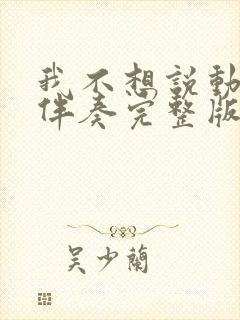 我不想說動
伴奏完整版
吳少蘭